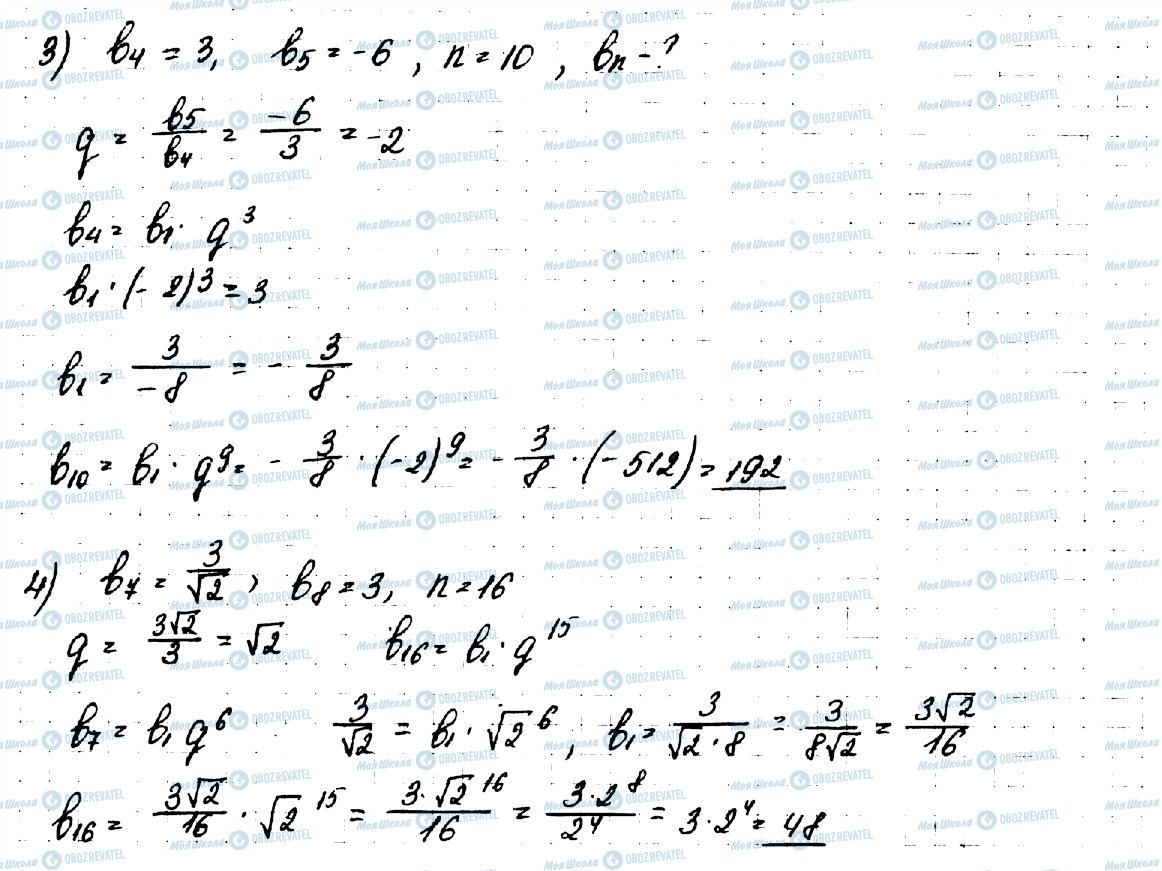 3) b₄ = 3, b₅ = -6, n = 10, bₙ - ?
q = b₅/b₄ = -6/3 = -2
b₄ = b₁ · q³
b₁ · (-2)³ = 3
b₁ = 3/-8 = - 3/8
b₁₀ = b₁ · q⁹ = - 3/8 · (-2)⁹ = - 3/8 · (-512) = 192
4) b₇ = 3/√2, b₈ = 3, n = 16
q = 3√2/3 = √2 b₁₆ = b₁ · q¹⁵
b₇ = b₁ q⁶ 3/√2 = b₁ · √2⁶, b₁ = 3/√2·8 = 3/8√2 = 3√2/16
b₁₆ = 3√2/16 · √2¹⁵ = 3·√2¹⁶/16 = 3·2⁸/2⁴ = 3·2⁴ = 48
Моя Школа OBOZREVATEL